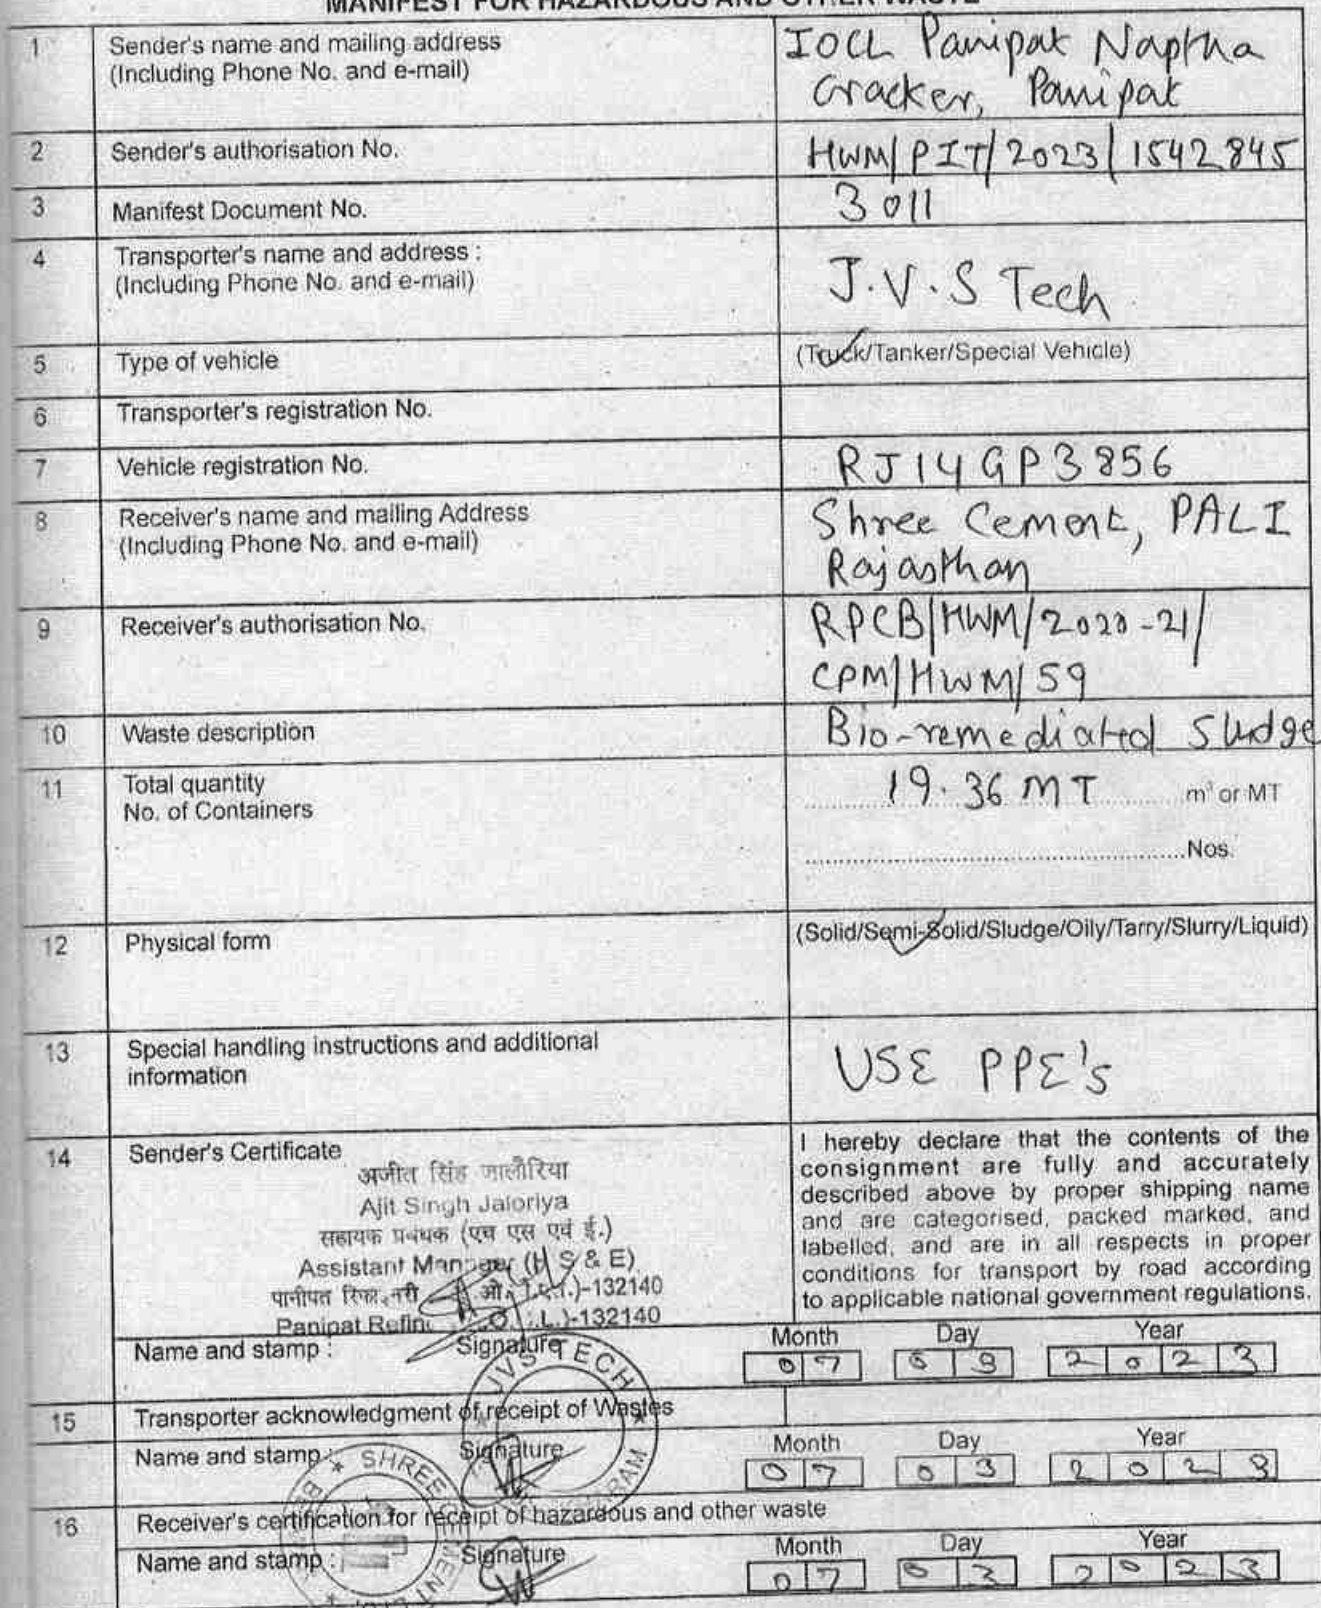 MANIFEST FOR HAZARDOUS AND OTHER WASTE
1 Sender's name and mailing address
(Including Phone No. and e-mail)
IOCL Panipat Naptha
Cracker, Panipat
2 Sender's authorisation No.
HWM/PIT/2023/1542845
3 Manifest Document No.
3011
4 Transporter's name and address :
(Including Phone No. and e-mail)
J.V.S Tech
5 Type of vehicle
(Truck/Tanker/Special Vehicle)
6 Transporter's registration No.
7 Vehicle registration No.
RJ14GP3856
8 Receiver's name and mailing Address
(Including Phone No. and e-mail)
Shree Cement, PALI
Rajasthan
9 Receiver's authorisation No.
RPCB/HWM/2020-21/
CPM/HWM/59
10 Waste description
Bio-remediated Sludge
11 Total quantity
No. of Containers
19.36 MT m³ or MT
Nos.
12 Physical form
(Solid/Semi-Solid/Sludge/Oily/Tarry/Slurry/Liquid)
13 Special handling instructions and additional
information
USE PPE's
14 Sender's Certificate
अजीत सिंह जालौरिया
Ajit Singh Jaloriya
सहायक प्रबंधक (एच एस एवं ई.)
Assistant Manager (H S & E)
पानीपत -132140
Panipat -132140
I hereby declare that the contents of the
consignment are fully and accurately
described above by proper shipping name
and are categorised, packed marked, and
labelled, and are in all respects in proper
conditions for transport by road according
to applicable national government regulations.
Name and stamp : Signature Month Day Year
07 2023
JVS TECH
15 Transporter acknowledgment of receipt of Wastes
Name and stamp : Signature Month Day Year
07 03 2023
SHREE
16 Receiver's certification for receipt of hazardous and other waste
Name and stamp : Signature Month Day Year
07 03 2023